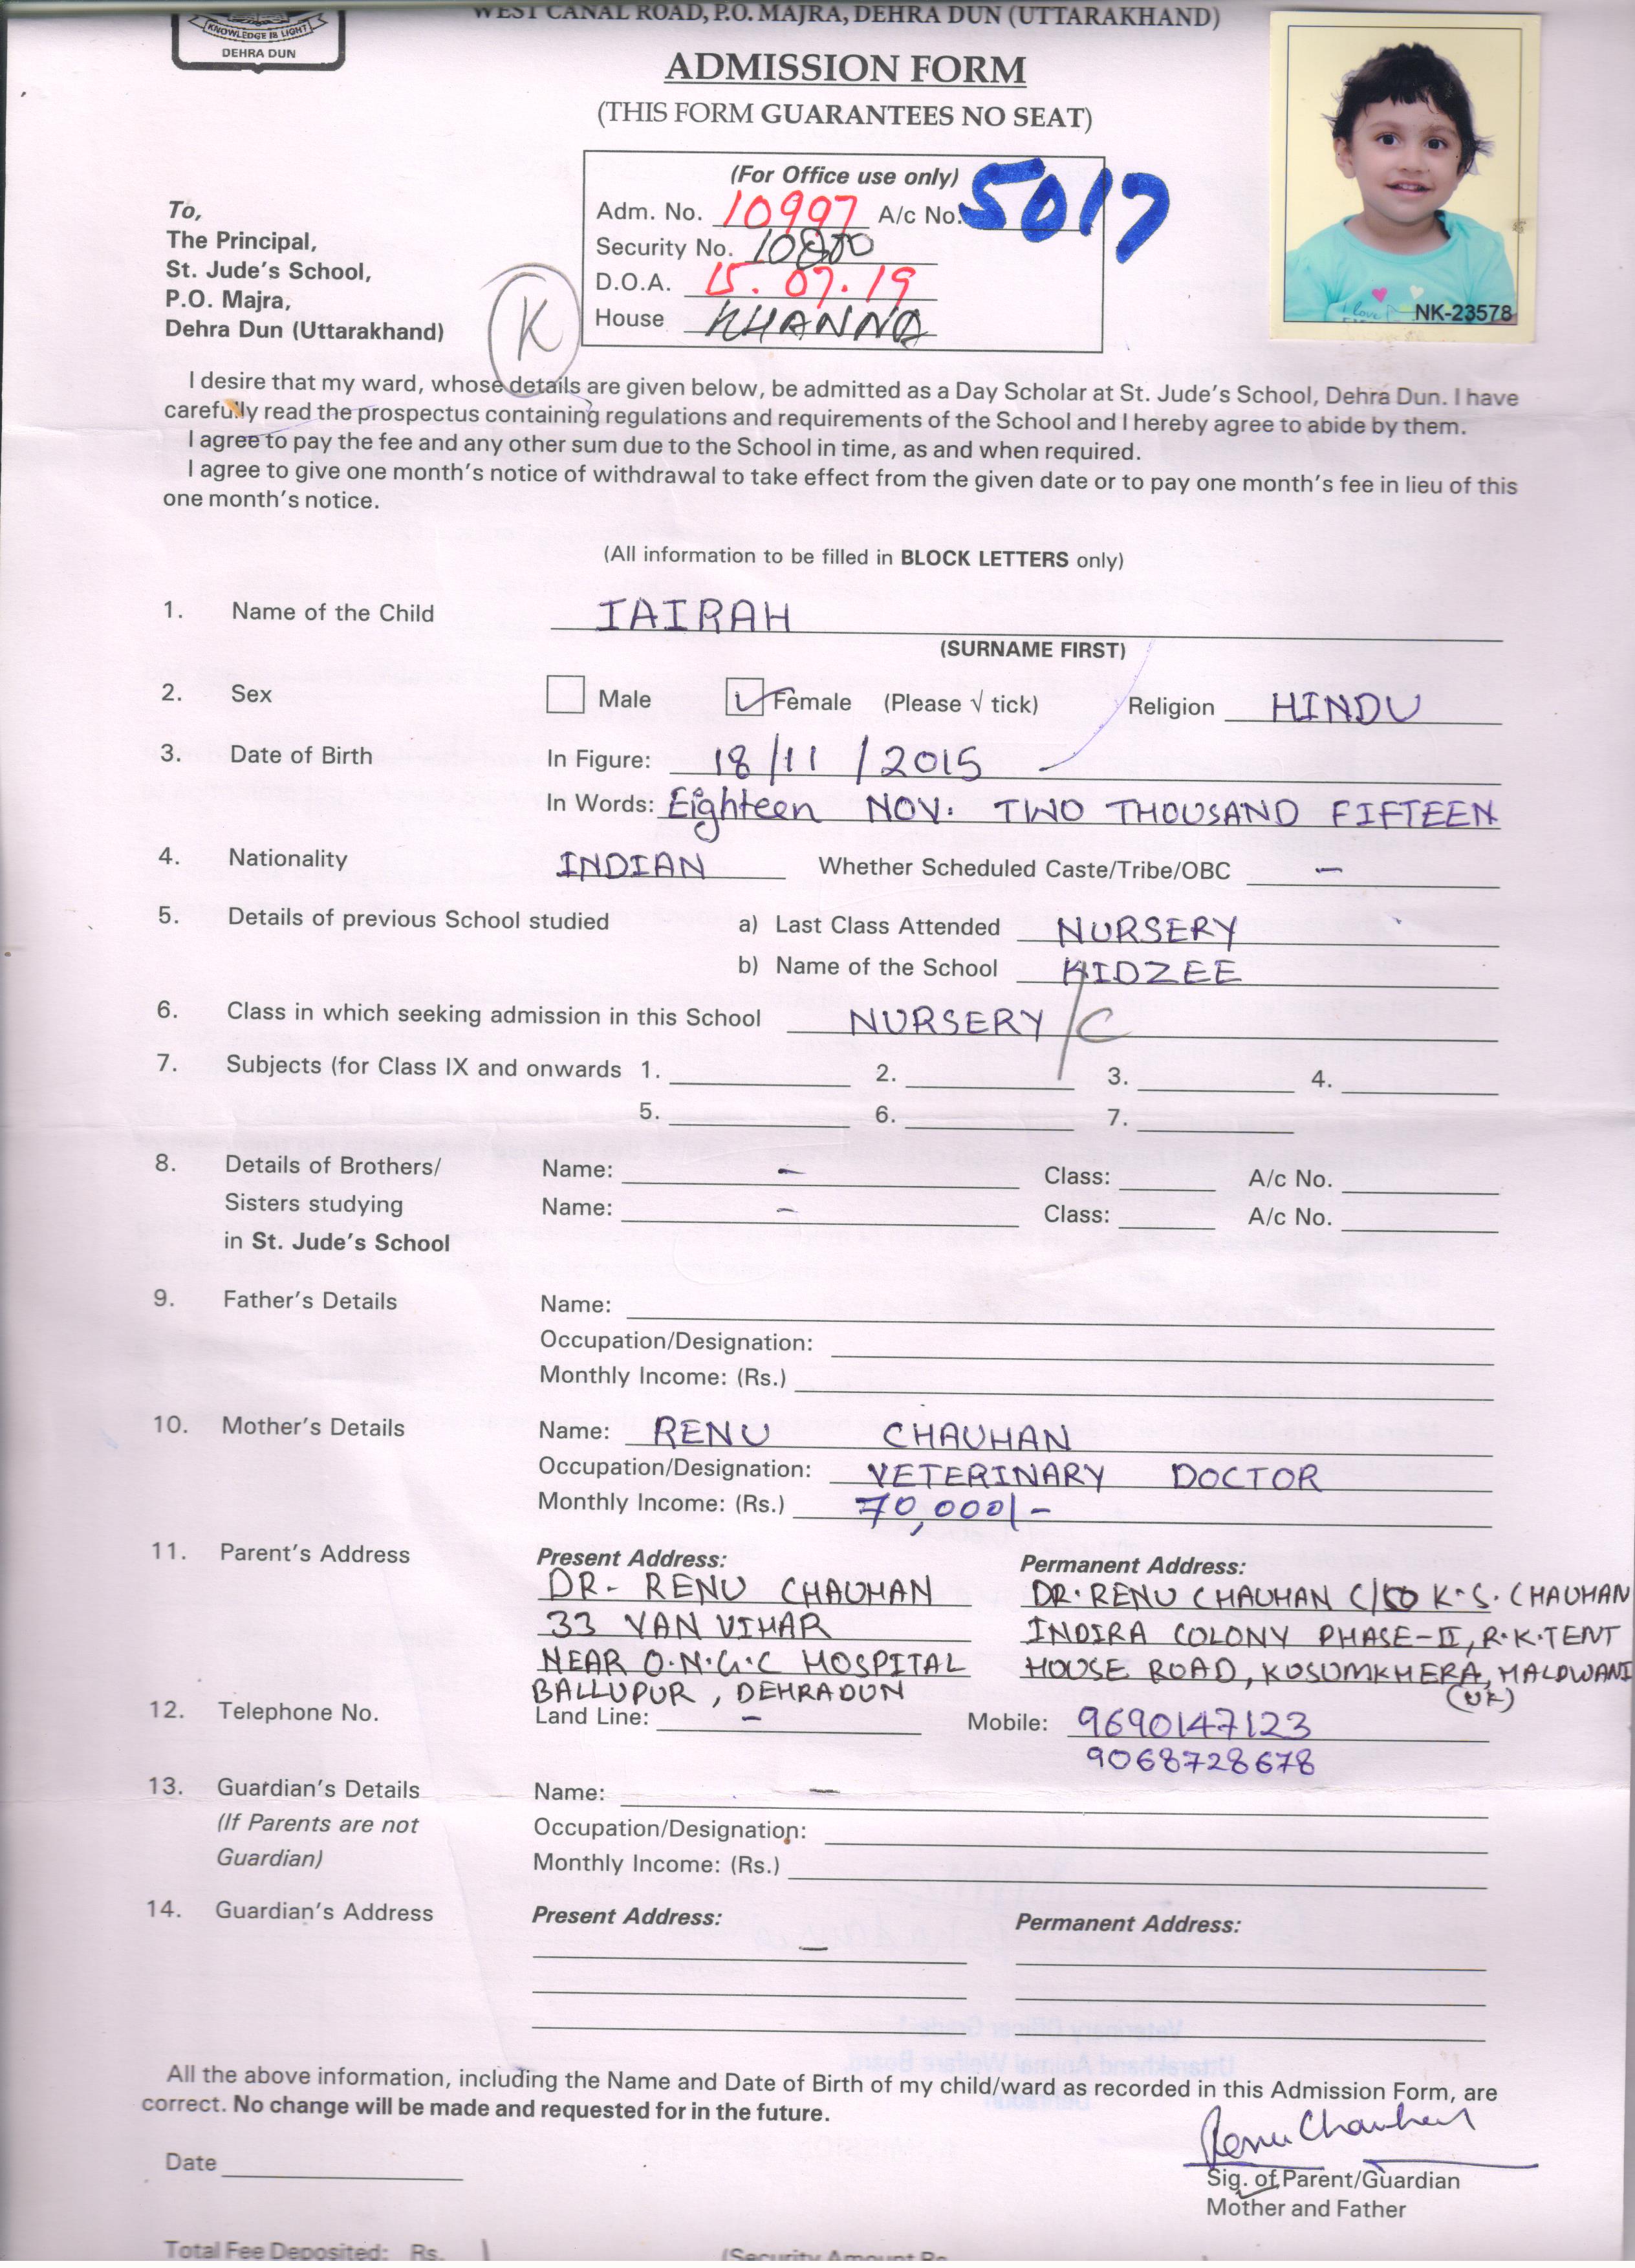 WEST CANAL ROAD, P.O. MAJRA, DEHRA DUN (UTTARAKHAND)
KNOWLEDGE IS LIGHT
DEHRA DUN
ADMISSION FORM
(THIS FORM GUARANTEES NO SEAT)
(For Office use only)
Adm. No. 10997 A/c No. 5017
Security No. 10800
D.O.A. 15.07.19
House KHANNA
K
NK-23578
I love
To,
The Principal,
St. Jude's School,
P.O. Majra,
Dehra Dun (Uttarakhand)
I desire that my ward, whose details are given below, be admitted as a Day Scholar at St. Jude's School, Dehra Dun. I have
carefully read the prospectus containing regulations and requirements of the School and I hereby agree to abide by them.
I agree to pay the fee and any other sum due to the School in time, as and when required.
I agree to give one month's notice of withdrawal to take effect from the given date or to pay one month's fee in lieu of this
one month's notice.
(All information to be filled in BLOCK LETTERS only)
1. Name of the Child IAIRAH
(SURNAME FIRST)
2. Sex Male Female (Please √ tick) Religion HINDU
3. Date of Birth In Figure: 18/11/2015
In Words: Eighteen NOV. TWO THOUSAND FIFTEEN
4. Nationality INDIAN Whether Scheduled Caste/Tribe/OBC —
5. Details of previous School studied a) Last Class Attended NURSERY
b) Name of the School KIDZEE
6. Class in which seeking admission in this School NURSERY/C
7. Subjects (for Class IX and onwards 1. 2. 3. 4.
5. 6. 7.
8. Details of Brothers/ Name: — Class: A/c No.
Sisters studying Name: — Class: A/c No.
in St. Jude's School
9. Father's Details Name:
Occupation/Designation:
Monthly Income: (Rs.)
10. Mother's Details Name: RENU CHAUHAN
Occupation/Designation: VETERINARY DOCTOR
Monthly Income: (Rs.) 70,000/-
11. Parent's Address Present Address: Permanent Address:
DR. RENU CHAUHAN DR. RENU CHAUHAN C/O K.S. CHAUHAN
33 VAN VIHAR INDIRA COLONY PHASE-II, R.K.TENT
NEAR O.N.G.C HOSPITAL HOUSE ROAD, KUSUMKHERA, HALDWANI
BALLUPUR, DEHRADUN (UK)
12. Telephone No. Land Line: — Mobile: 9690147123
9068728678
13. Guardian's Details Name: —
(If Parents are not Occupation/Designation:
Guardian) Monthly Income: (Rs.)
14. Guardian's Address Present Address: Permanent Address:
—
All the above information, including the Name and Date of Birth of my child/ward as recorded in this Admission Form, are
correct. No change will be made and requested for in the future.
Renu Chauhan
Date Sig. of Parent/Guardian
Mother and Father
Total Fee Deposited: Rs. (Security Amount Rs.